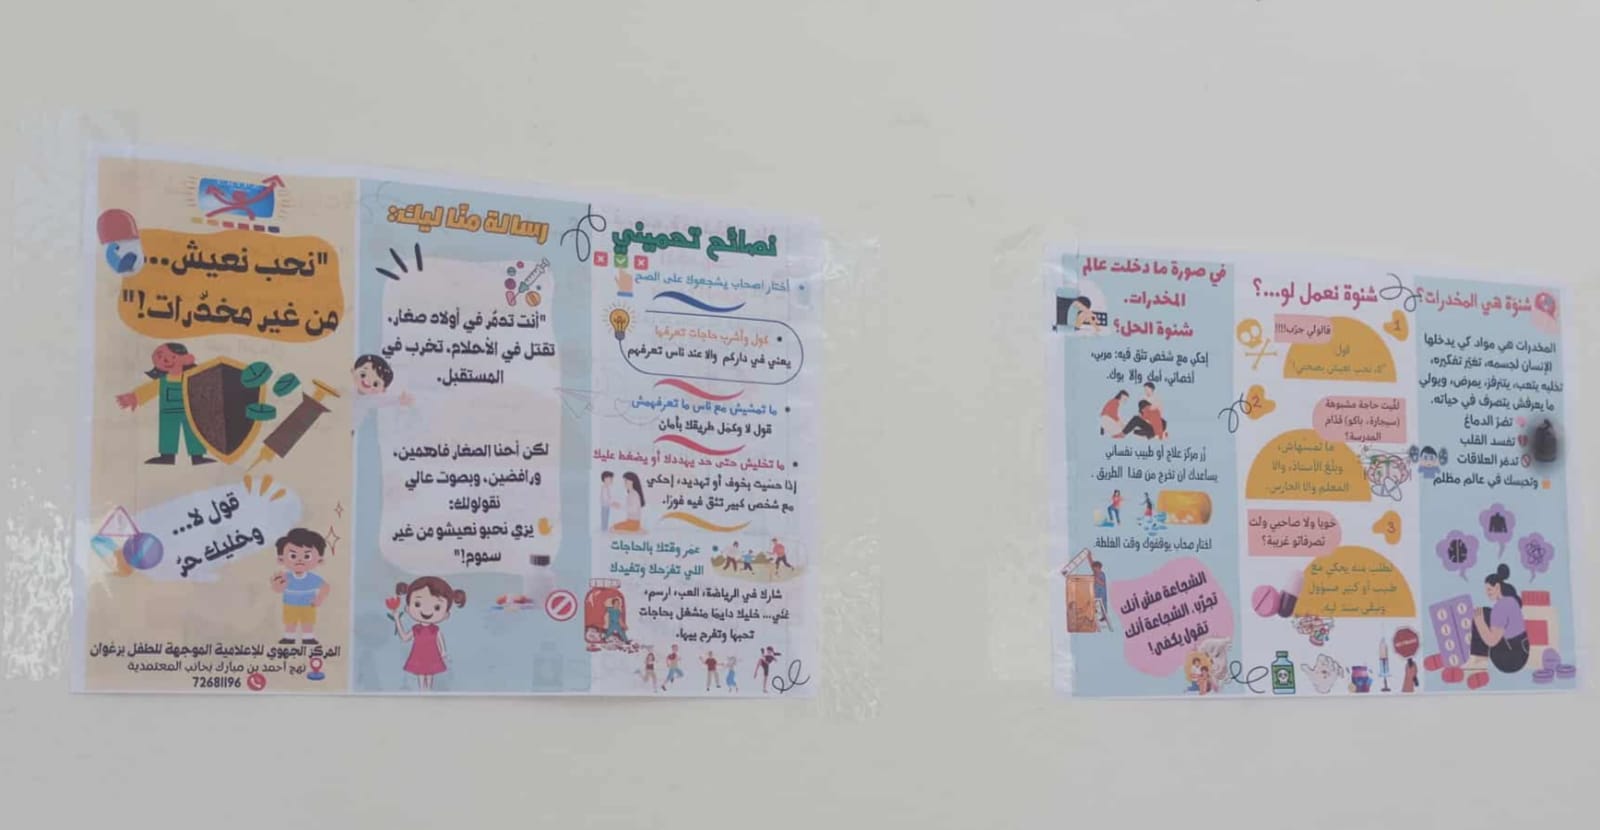 نصائح تحميني
أختار اصحاب يشجعوك على الصح
كول وأشرب حاجات تعرفها
يعني في داركم والا عند ناس تعرفهم
ما تمشيش مع ناس ما تعرفهمش
قول لا وكمل طريقك بأمان
ما تخليش حتى حد يهددك أو يضغط عليك
إذا حسيت بخوف أو تهديد، إحكي
مع شخص كبير تثق فيه فورًا.
عمر وقتك بالحاجات
اللي تفرحك وتفيدك
شارك في الرياضة، العب، ارسم،
غني... خليك دايمًا منشغل بحاجات
تحبها وتفرح بيها.
رسالة منّا ليك:
"أنت تدمّر في أولاد صغار،
تقتل في الأحلام، تخرب في
المستقبل.
لكن أحنا الصغار فاهمين،
ورافضين، وبصوت عالي
نقولولك:
يزي نحبو نعيشو من غير
سموم!"
"نحب نعيش...
من غير مخدّرات!"
قول لا...
وخليك حرّ
المركز الجهوي للإعلامية الموجهة للطفل بزغوان
نهج أحمد بن مبارك بجانب المعتمدية
72681196
شنوة هي المخدرات؟
المخدرات هي مواد كي يدخلها
الإنسان لجسمه، تغيّر تفكيره،
تخليه يتعب، يتنرفز، يمرض، ويولي
ما يعرفش يتصرف في حياته.
تضرّ الدماغ
تفسد القلب
تدمّر العلاقات
وتحبسك في عالم مظلم
شنوة نعمل لو...؟
1
قالولي جرّب!!!!
قول
"لا، نحب نعيش بصحتي!
2
لقيت حاجة مشبوهة
(سيجارة، باكو) قدّام
المدرسة؟
ما تمسّهاش،
وبلّغ الأستاذ، والا
المعلم والا الحارس.
3
خويا ولا صاحبي ولّت
تصرفاتو غريبة؟
نطلب منه يحكي مع
طبيب أو كبير مسؤول
ونبقى سند ليه.
في صورة ما دخلت عالم
المخدرات.
شنوة الحل؟
إحكي مع شخص تثق فيه: مربي،
أخصائي، أمك وإلا بوك.
زُر مركز علاج أو طبيب نفساني
يساعدك ان تخرج من هذا الطريق .
اختار صحاب يوقفوك وقت الغلطة.
الشجاعة مش أنك
تجرّب. الشجاعة أنك
تقول يكفي!